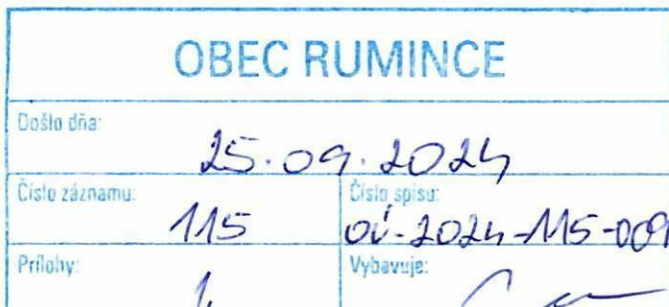 OBEC RUMINCE
Došlo dňa:
25.09.2024
Číslo záznamu:
115
Číslo spisu:
OÚ-2024-115-009
Prílohy:
1
Vybavuje: